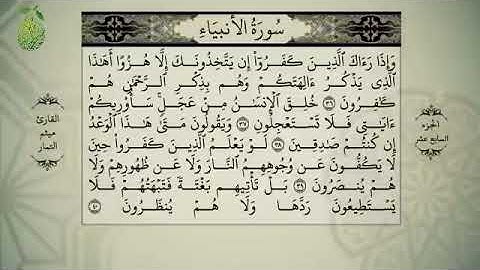 سُورَةُ الأَنبِيَاءِ
وَإِذَا رَءَاكَ ٱلَّذِينَ كَفَرُوٓا۟ إِن يَتَّخِذُونَكَ إِلَّا هُزُوًا أَهَٰذَا
ٱلَّذِى يَذْكُرُ ءَالِهَتَكُمْ وَهُم بِذِكْرِ ٱلرَّحْمَٰنِ هُمْ
كَٰفِرُونَ ٣٦ خُلِقَ ٱلْإِنسَٰنُ مِنْ عَجَلٍ سَأُو۟رِيكُمْ
ءَايَٰتِى فَلَا تَسْتَعْجِلُونِ ٣٧ وَيَقُولُونَ مَتَىٰ هَٰذَا ٱلْوَعْدُ
إِن كُنتُمْ صَٰدِقِينَ ٣٨ لَوْ يَعْلَمُ ٱلَّذِينَ كَفَرُوا۟ حِينَ
لَا يَكُفُّونَ عَن وُجُوهِهِمُ ٱلنَّارَ وَلَا عَن ظُهُورِهِمْ وَلَا
هُمْ يُنصَرُونَ ٣٩ بَلْ تَأْتِيهِم بَغْتَةً فَتَبْهَتُهُمْ فَلَا
يَسْتَطِيعُونَ رَدَّهَا وَلَا هُمْ يُنظَرُونَ ٤٠
الجزء
السابع عشر
القارئ
ميثم
التمار